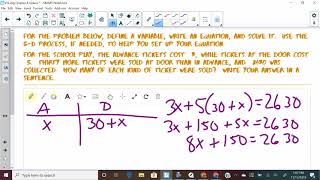 FOR THE PROBLEM BELOW, DEFINE A VARIABLE, WRITE AN EQUATION, AND SOLVE IT. USE THE
5-D PROCESS, IF NEEDED, TO HELP YOU SET UP YOUR EQUATION.
FOR THE SCHOOL PLAY, THE ADVANCE TICKETS COST $3, WHILE TICKETS AT THE DOOR COST
MORE TICKETS WERE SOLD AT THE DOOR THAN IN ADVANCE, AND $2630 WAS
COLLECTED. HOW MANY OF EACH KIND OF TICKET WERE SOLD? WRITE YOUR ANSWER IN A
SENTENCE.
A D
x 30+x
3x+5(30+x)=2630
3x+150+5x=2630
8x+150=2630